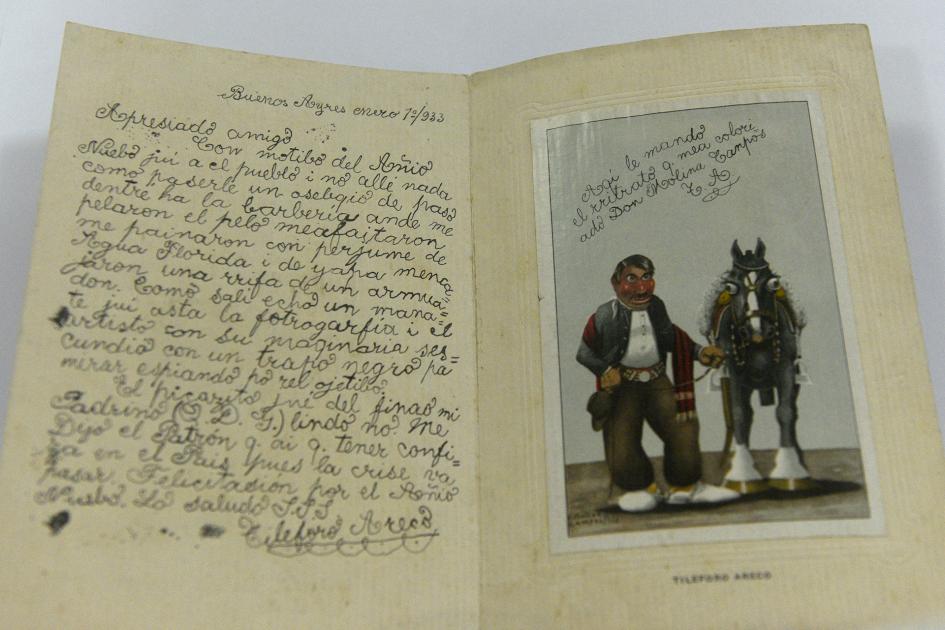 Buenos Ayres enero 1º/933
Apresiado amigo
Con motibo del Añio
Nuebo jui a el pueblo i no allé nada
como paserle un oselegio de paso
dentre ha la barberia ande me
pelaron el pelo meafaitaron
me painaron con perjume de
Agua Florida i de yapa menca=
jaron una rrifa de un armua=
don. Como sali echo un mana=
te jui asta la fotrogarfía i el
artisto con su maginaria ses=
cundio con un trapo negro pa
merar espiando po rel ojetibo.
El picazito jue del finao mi
Padrino (Q. D. G.) lindo no. Me
Dijo el Patron q. ai q. tener confi=
za en el Pais ypues la crise va
pasar. Felicitasion por el Añio
Nuebo. Lo saludo S.S.S.
Tileforo Areco
Aqi le mando
el rritrato q. mea colori
ado Don Molina Campos
T. A.
TILEFORO ARECO